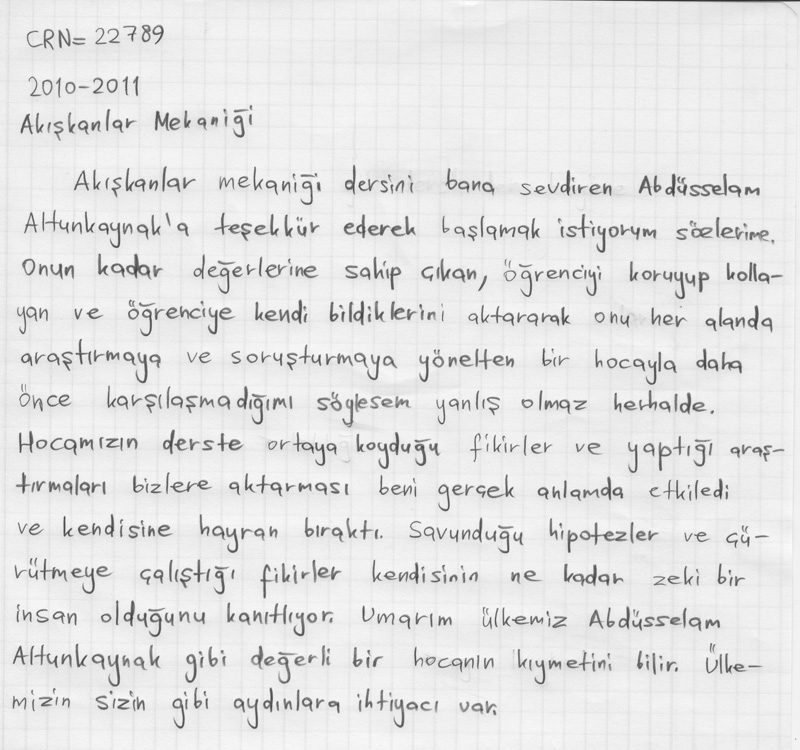 CRN= 22789
2010-2011
Akışkanlar Mekaniği
Akışkanlar mekaniği dersini bana sevdiren Abdüsselam
Altunkaynak'a teşekkür ederek başlamak istiyorum sözlerime.
Onun kadar değerlerine sahip çıkan, öğrenciyi koruyup kolla-
yan ve öğrenciye kendi bildiklerini aktararak onu her alanda
araştırmaya ve soruşturmaya yönelten bir hocayla daha
önce karşılaşmadığımı söylesem yanlış olmaz herhalde.
Hocamızın derste ortaya koyduğu fikirler ve yaptığı araş-
tırmaları bizlere aktarması beni gerçek anlamda etkiledi
ve kendisine hayran bıraktı. Savunduğu hipotezler ve çü-
rütmeye çalıştığı fikirler kendisinin ne kadar zeki bir
insan olduğunu kanıtlıyor. Umarım ülkemiz Abdüsselam
Altunkaynak gibi değerli bir hocanın kıymetini bilir. Ülke-
mizin sizin gibi aydınlara ihtiyacı var.